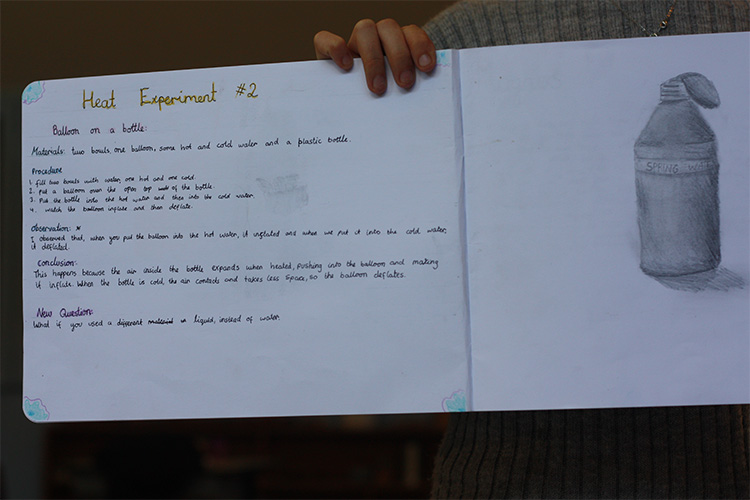 Heat Experiment #2
Balloon on a bottle:
Materials: two bowls, one balloon, some hot and cold water and a plastic bottle.
Procedure
1. fill two bowls with water, one hot and one cold.
2. Put a balloon over the open top of the bottle.
3. Put the bottle into the hot water and then into the cold water.
4. watch the balloon inflate and then deflate.
Observation:
I observed that, when you put the balloon into the hot water, it inflated and when we put it into the cold water,
it deflated.
Conclusion:
This happens because the air inside the bottle expands when heated, pushing into the balloon and making
it inflate. When the bottle is cold, the air contacts and takes less space, so the balloon deflates.
New Question:
What if you used a different liquid, instead of water.
SPRING WAT